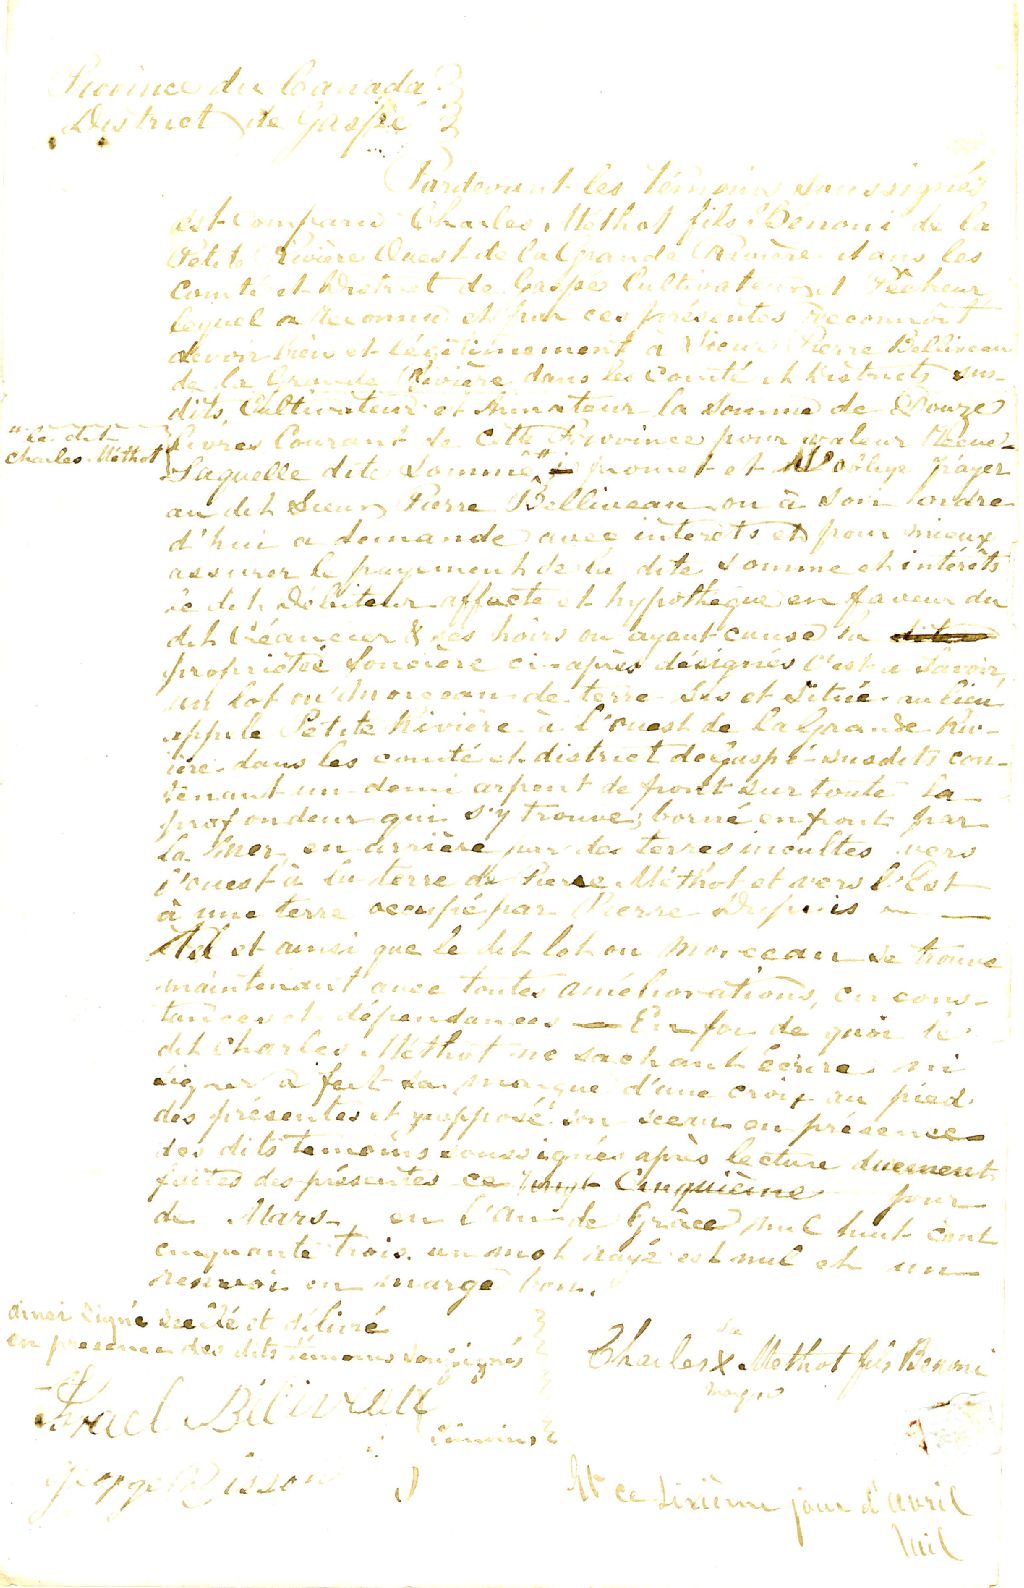 Province du Canada
District de Gaspé
Pardevant les témoins soussignés
est comparu Charles Méthot fils Benoni de la
Petite Rivière Ouest de la Grande Rivière dans les
comté et District de Gaspé Cultivateur et Pêcheur
lequel a reconnu et par ces présentes reconnoît
devoir bien et légitimement à Sieur Pierre Belliveau
de la Grande Rivière dans les Comté et Districts sus-
dits, Cultivateur et Armateur la somme de Douze
Livres Courant de cette Province pour valeur Recue
" le dit
Charles Méthot
Laquelle dite somme " promet et s'oblige payer
au dit Sieur Pierre Belliveau ou à son ordre
d'hui a demande avec intérêts et pour mieux
assurer le payement de la dite somme et intérêts
le dit Débiteur affecte et hypothèque en faveur du
dit Créancier & ses hoirs ou ayant cause la dite
propriété foncière ci-après désignés c'est a savoir
un lot ou morceau de terre sis et situé au lieu
appele Petite Rivière à l'ouest de la Grande Ri-
ière dans les comté et district de Gaspé susdits con-
tenant un demi arpent de front sur toute la
profondeur qui s'y trouve; borné en front par
la Mer, en arrière par des terres incultes vers
l'ouest à la terre de Pierre Méthot et vers l'Est
à une terre occupé par Pierre Dupuis
Tel et ainsi que le dit lot ou morceau se trouve
maintenant avec toutes améliorations, circons-
tances et dépendances — En foi de quoi le
dit Charles Méthot ne sachant écrire ni
signer a fait sa marque d'une croix au pied
des présentes et y apposé son sceau en présence
des dits temoins soussignés après lecture duement
faites des présentes ce vingt Cinquième jour
de Mars, en l'An de Grâce mil huit cent
cinquante trois. un mot rayé est nul et un
renvoi en marge bon.
ainsi signé scellé et délivré
en presence des dits témoins soussignés
Charles X Méthot fils Benoni
sa
marque
Israel Béliveau
témoins
George Bisson
Et ce sixième jour d'avril
mil